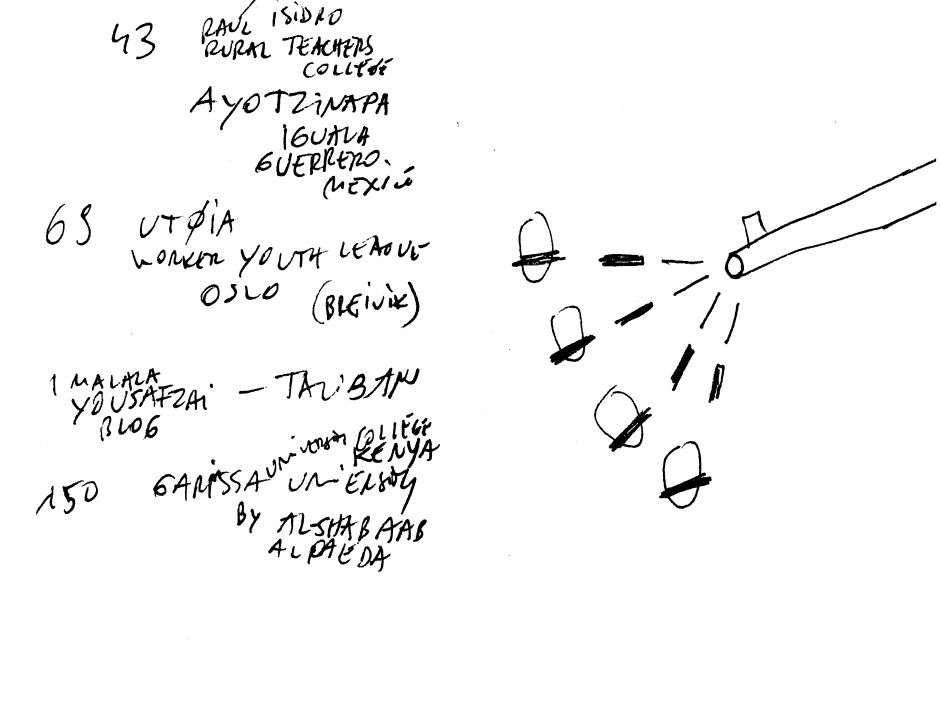 43 RAUL ISIDRO
RURAL TEACHERS
COLLÉGÉ
AYOTZINAPA
IGUALA
GUERRERO.
MEXICÓ
69 UTØIA
WORKER YOUTH LEAGUE
OSLO (BREIVIK)
1 MALALA
YOUSAFZAI — TALIBAN
BLOG
UNIVERSITY COLLÉGE
KENYA
150 GARISSA UNIERSITY
BY AL-SHABAAB
AL QAEDA